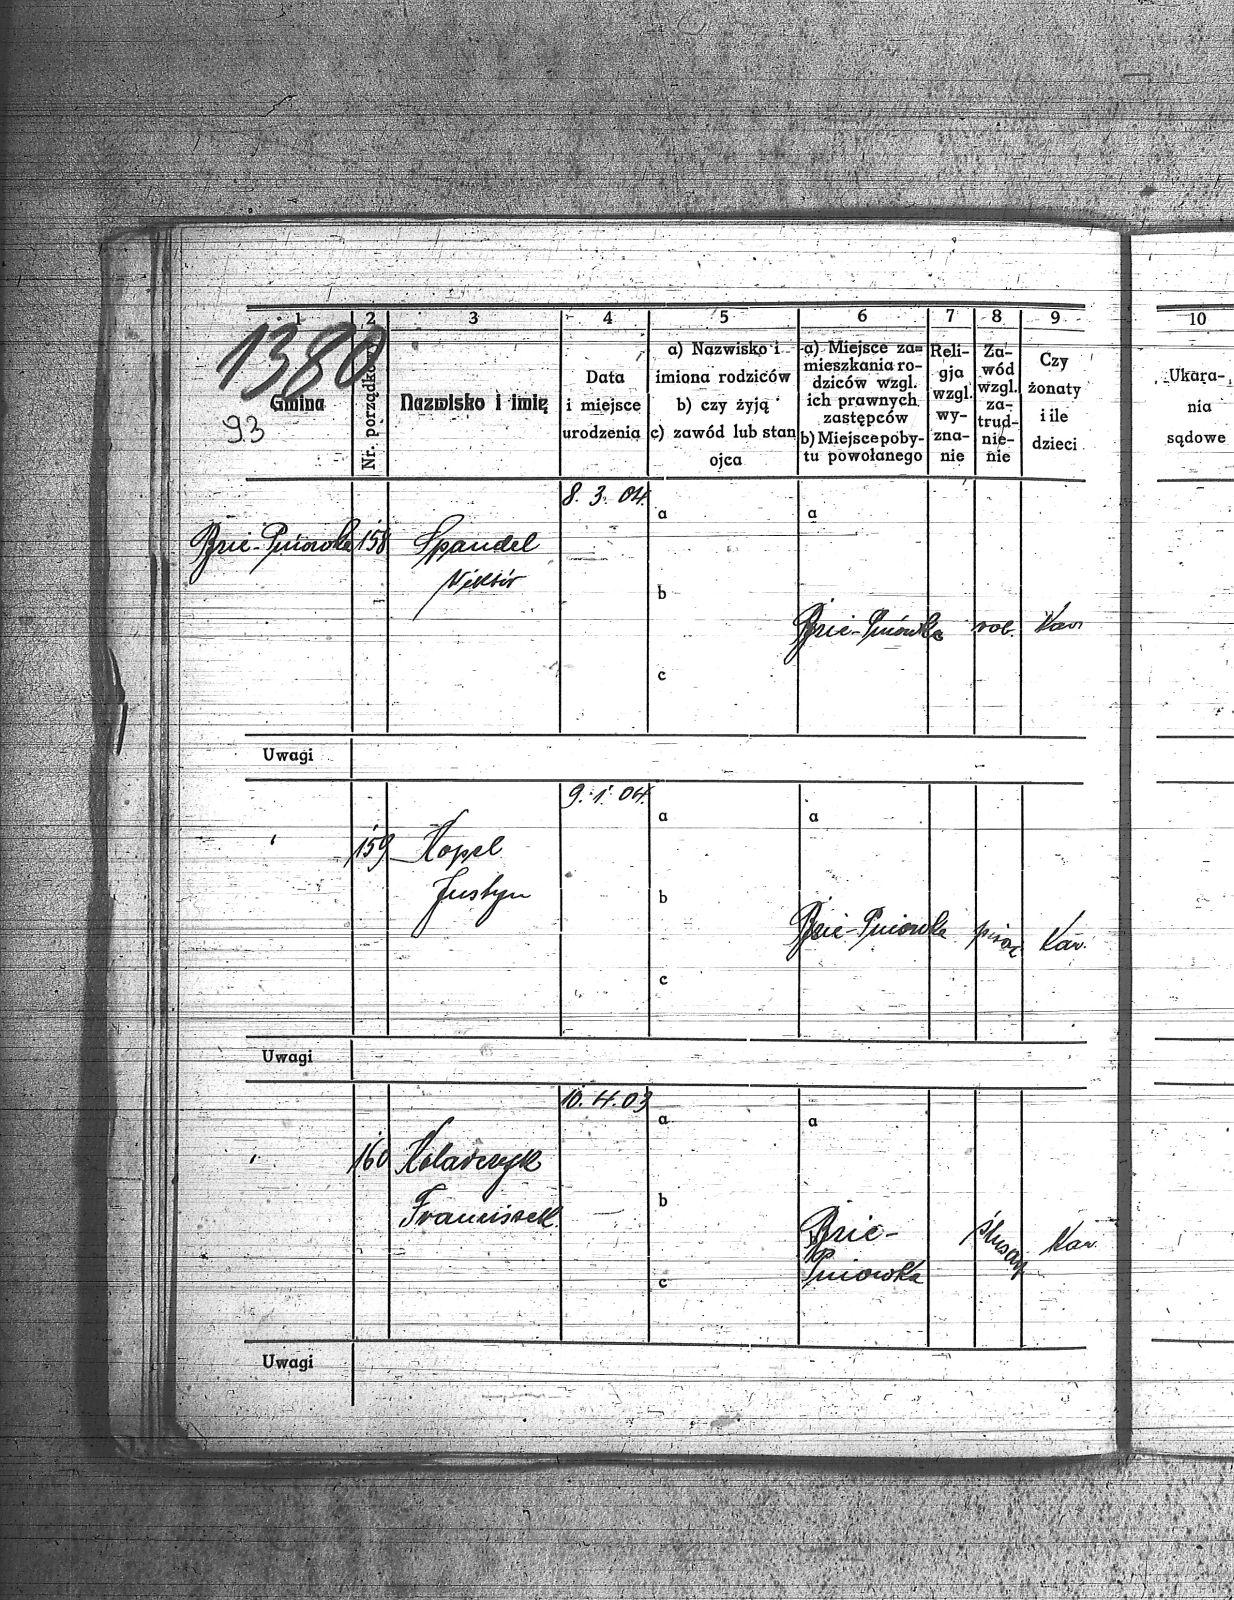 1 2 3 4 5 6 7 8 9 10
1380
93
Gmina
Nr. porządko
Nazwisko i imię
Data
i miejsce
urodzenia
a) Nazwisko i
imiona rodziców
b) czy żyją
c) zawód lub stan
ojca
a) Miejsce za=
mieszkania ro-
dziców wzgl.
ich prawnych
zastępców
b) Miejsce poby-
tu powołanego
Reli-
gja
wzgl.
wy-
zna-
nie
Za-
wód
wzgl.
za-
trud-
nie-
nie
Czy
żonaty
i ile
dzieci
Ukara-
nia
sądowe
8. 3. 04.
a a
Brie-Pniowka 158 Spandel
Viktor
b
Brie-Pniówka rob. Kav
c
Uwagi
9. 1. 04.
a a
159 Kopel
Justyn
b
Brie-Pniowka Kav.
c
Uwagi
10. 4. 03
a a
160 Kolarczyk
Franciszek
b
Brie-
Pniowka
Kav.
c
Uwagi